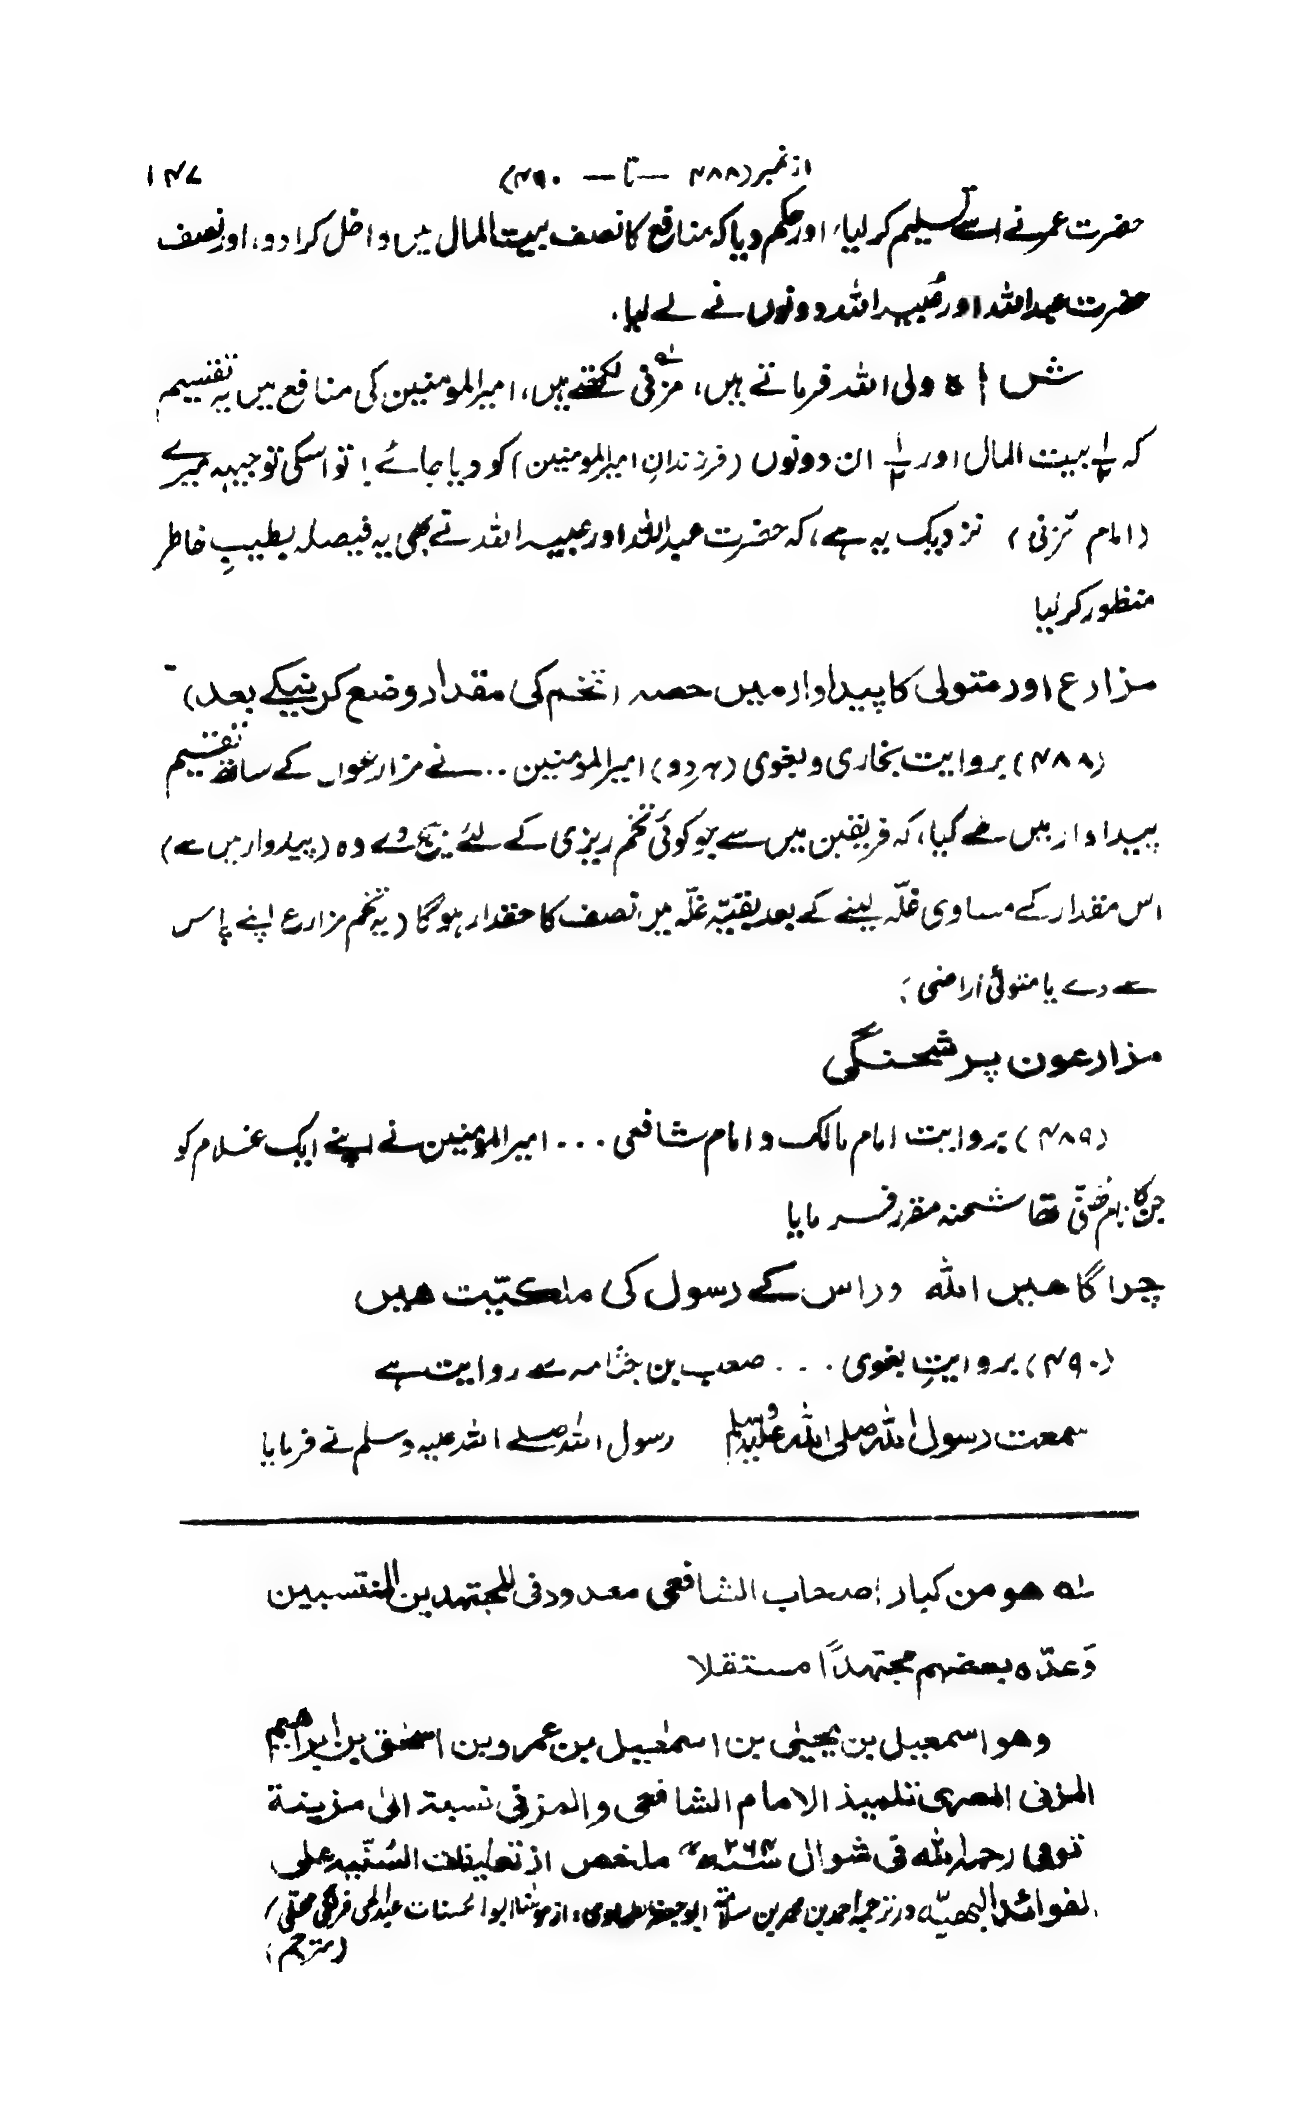 از نمبر (۴۸۸ — تا — ۴۹۰) ۱۴۷
حضرت عمر نے اسے تسلیم کر لیا، اور حکم دیا کہ منافع کا نصف بیت المال میں داخل کرا دو، اور نصف
حضرت عبداللہ اور عُبیداللہ دونوں نے لے لیا.
شاہ ولی اللہ فرماتے ہیں، مزنی لہ لکھتے ہیں، امیرالمومنین کی منافع میں یہ تقسیم
کہ ½ بیت المال اور ½ ان دونوں (فرزندانِ امیرالمومنین) کو دیا جائے! تو اسکی توجیہہ میرے
(امام مزنی) نزدیک یہ ہے، کہ حضرت عبداللہ اور عبیداللہ نے بھی یہ فیصلہ بطیبِ خاطر
منظور کر لیا
مزارع اور متولی کا پیداوار میں حصہ (تخم کی مقدار وضع کرنیکے بعد)
(۴۸۸) بروایت بخاری و بغوی (ہر دو) امیرالمومنین .. نے مزارعوں کے ساتھ تقسیم
پیداوار میں طے کیا، کہ فریقین میں سے جو کوئی تخم ریزی کے لئے بیج دے وہ (پیداوار میں سے)
اس مقدار کے مساوی غلّہ لینے کے بعد بقیّہ غلّہ میں نصف کا حقدار ہوگا (یہ تخم مزارع اپنے پاس
سے دے یا متولیٔ اراضی):
مزارعون پر شحنگی
(۴۸۹) بروایت امام مالک و امام شافعی ... امیرالمومنین نے اپنے ایک غلام کو
جن کا نام ھُنَیّ تھا شحنہ مقرر فرمایا
چراگاھیں اللہ وراس کے رسول کی ملکیّت ھیں
(۴۹۰) بروایتِ بغوی ... صعب بن جثّامہ سے روایت ہے
سمعت رسول اللہ صلی اللہ علیہ وسلم رسول اللہ صلے اللہ علیہ وسلم نے فرمایا
لہ ھو من کبار اصحاب الشافعی معدود فی المجتھدین المنتسبین
وَعدّہ بعضھم مجتھداً مستقلا
وھو اسمعیل بن یحییٰ بن اسمٰعیل بن عمرو بن اسحٰق بن ابراھیم
المزنی المصری تلمیذ الامام الشافعی والمزنی نسبتہ الیٰ مزینة
توفی رحمہ اللہ فی شوال سنہ ۲۶۴ھ ملخص از تعلیقات السنّیہ علی
الفوائد البھیّہ در ترجمہ احمد بن محمد بن سلامة ابو جعفر طحاوی، از مولٰنا ابوالحسنات عبدالحی فرنگی محلّی/
(مترجم)